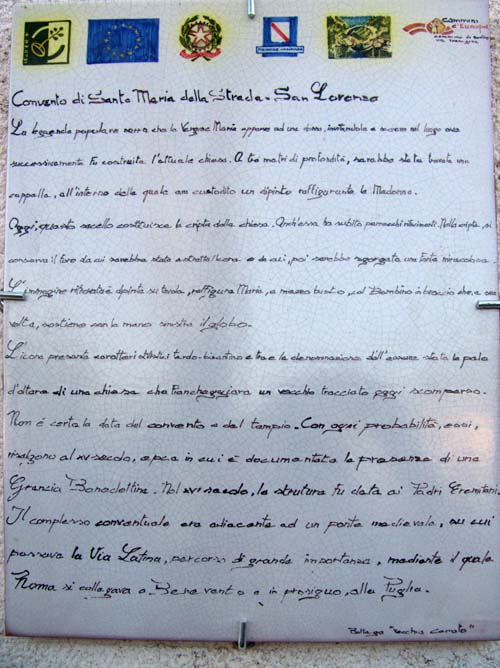 Cammini
d'Europa
Convento di Santa Maria della Strada - San Lorenzo
La leggenda popolare narra che la Vergine Maria apparve ad una donna, invitandola a scavare nel luogo ove
successivamente fu costruita l'attuale chiesa. A tre metri di profondità, sarebbe stata trovata una
cappella, all'interno della quale era custodito un dipinto raffigurante la Madonna.
Oggi, questo sacello costituisce la cripta della chiesa. Anch'essa ha subito parecchi rifacimenti. Nella cripta, si
conserva il foro da cui sarebbe stata estratta l'icona e da cui, poi sarebbe sgorgata una fonte miracolosa.
L'immagine ritrovata è dipinta su tavola, raffigura Maria, a mezzo busto, col Bambino in braccio che, a sua
volta, sostiene con la mano sinistra il globo.
L'icona presenta caratteri stilistici tardo-bizantino e trae la denominazione dall'essere stata la pala
d'altare di una chiesa che fiancheggiava un vecchio tracciato oggi scomparso.
Non è certa la data del convento e del tempio. Con ogni probabilità, essi,
risalgono al XV secolo, epoca in cui è documentata la presenza di una
Grancia Benedettina. Nel XVI secolo, la struttura fu data ai Padri Eremitani.
Il complesso conventuale era adiacente ad un ponte medievale, su cui
passava la Via Latina, percorso di grande importanza, mediante il quale
Roma si collegava a Benevento e in prosieguo, alla Puglia.
"Vecchio Canneto"